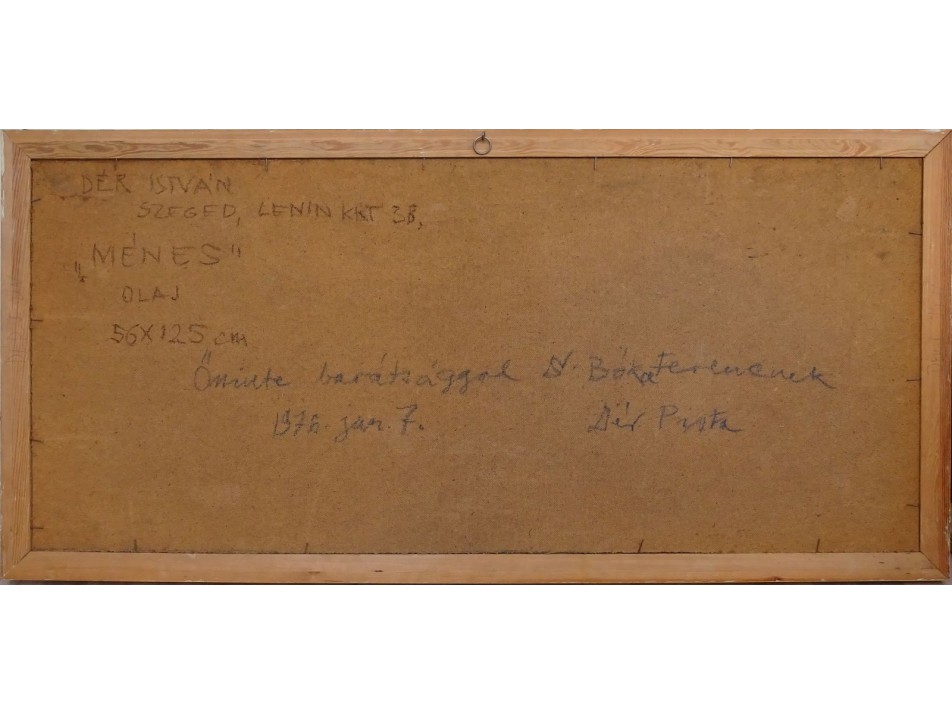 DÉR ISTVÁN
SZEGED, LENIN KRT 3B,
„MÉNES"
OLAJ
56X125 cm
Őszinte barátsággal Dr. Bóka Ferencnek
1976. jan. 7. Dér Pista